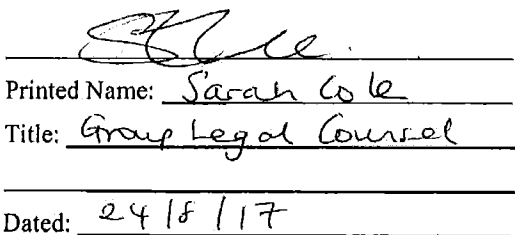 Printed Name: Sarah Cole
Title: Group Legal Counsel
Dated: 24/8/17